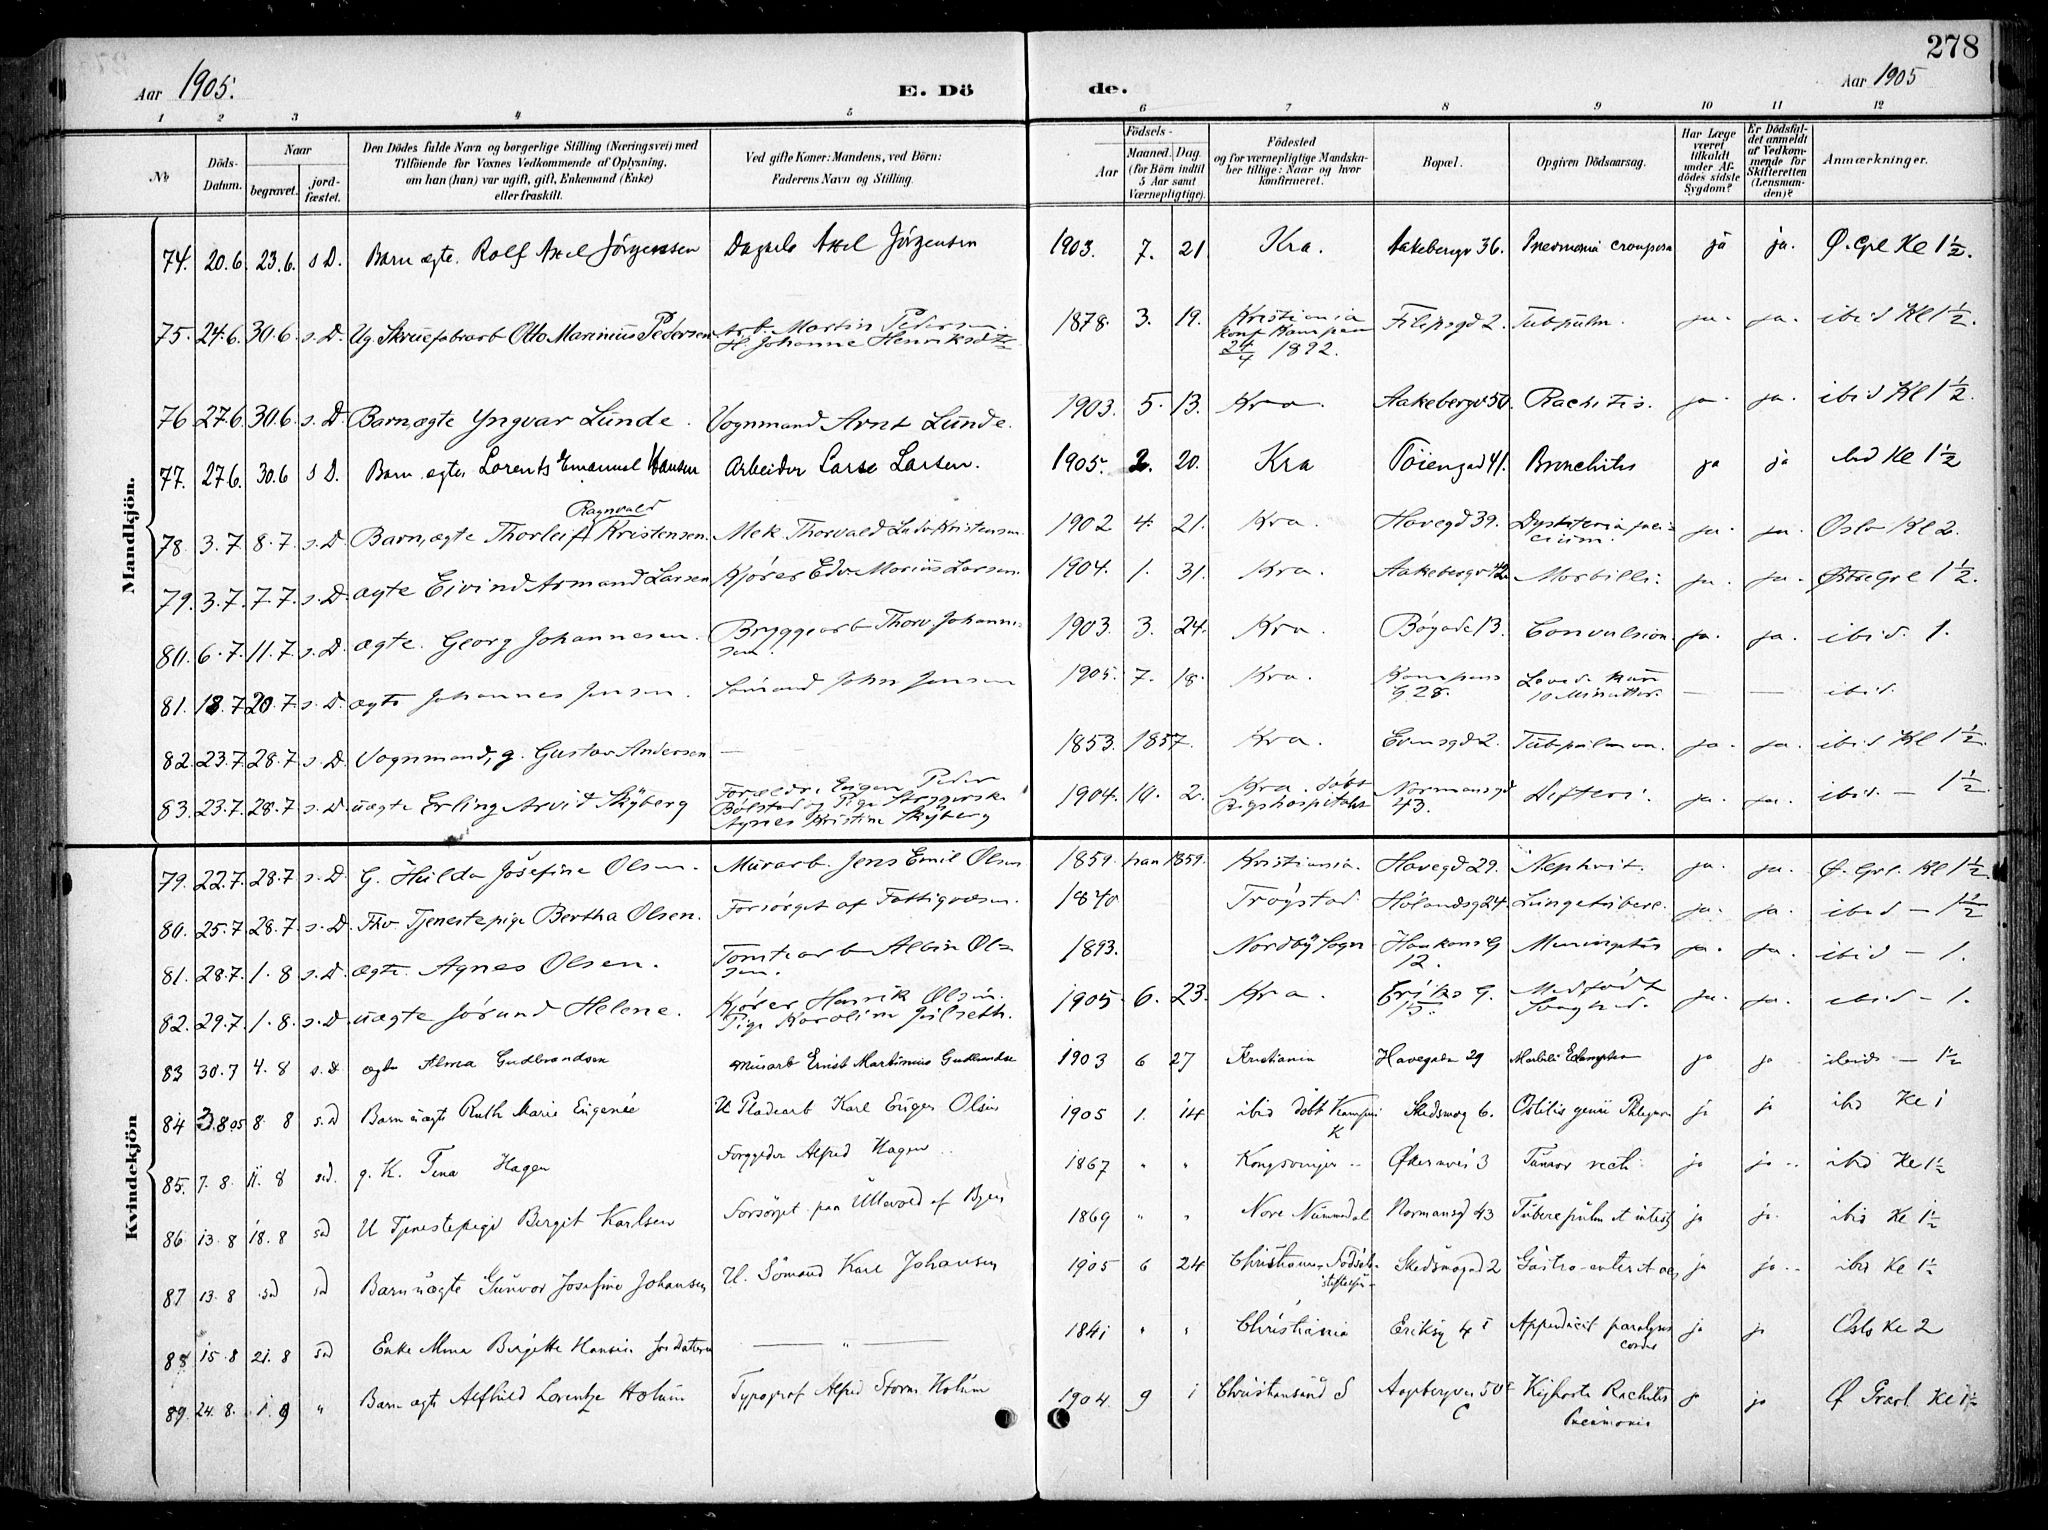 278
Aar 1905. E. Dö de. Aar 1905
1 2 3 4 5 6 7 8 9 10 11 12
No. Döds-Datum. Naar begravet. jord-fæstet. Den Dödes fulde Navn og borgerlige Stilling (Næringsvei) med Tilföiende for Voxnes Vedkommende af Oplysning, om han (hun) var ugift, gift, Enkemand (Enke) eller fraskilt. Ved gifte Koner: Mandens, ved Börn: Faderens Navn og Stilling. Födsels- Aar Maaned. Dag. (for Börn indtil 5 Aar samt Værnepligtige). Födested og for værnepligtige Mandskaber tillige: Naar og hvor konfirmeret. Bopæl. Opgiven Dödsaarsag. Har Læge været tilkaldt under Afdödes sidste Sygdom? Er Dödsfaldet anmeldt af Vedkommende for Skifteretten (Lensmanden)? Anmærkninger.
Mandkjön.
74. 20.6 23.6. s D. Barn ægte. Rolf Axel Jörgensen Axel Jörgensen 1903. 7. 21 Kra. Aakebergv 36. Pneumonia crouposa ja ja. Ø. Grl Kl 1½.
75. 24.6. 30.6 s. D. Ug. Skruefabrarb Otto Marinius Pedersen Arb. Martin Pedersen. H. Johanne Henriksdtr 1878. 3. 19. Kristiania konf Kampen 24/4 1892. Filipsgd 2. Tub pulm. ja. ja. ibid Kl 1½.
76. 27.6. 30.6 s. D. Barn, ægte Yngvar Lunde. Vognmand Arnt Lunde. 1903. 5. 13. Kra. Aakebergv 50. Rachitis. ja. ja. ibid Kl 1½.
77. 27.6. 30.6 s D. Barn ægte Lorents Emanuel Hansen Arbeider Lars Larsen. 1905. 2. 20. Kra Töiengad 41. Bronchitis ja ja ibid Kl 1½
78. 3.7 8.7. s. D. Barn, ægte Thorleif Ragnvald Kristensen. Mek. Thorvald Ludv Kristensen 1902 4. 21. Kra. Havegd 39. ja. ja. Oslo Kl 2.
79. 3.7. 7.7. s. D. ægte Eivind Armand Larsen Kjörer Edv. Marius Larsen. 1904. 1. 31. Kra. Aakebergv 42. Morbilli. ja. ja. Østre Grl 1½.
80. 6.7. 11.7. s. D. ægte. Georg Johannesen. Bryggearb Thorv. Johannesen. 1903. 3. 24. Kra. Bögade 13. Convulsion ja. ja. ibid. 1.
81. 18.7 20.7. s. D. ægte Johannes Jensen. Sömand John Jensen 1905. 7. 18. Kra. Kampens g 28. Leved kun 10 Minutter. — — ibid.
82. 23.7. 28.7. s. D. Vognmand, g. Gustav Andersen — 1853. 1857. Kra. Evensgd 2. Tub pulmon. ja. ja. ibid Kl 1½.
83. 23.7. 28.7. s. D uægte Erling Arvid Skyberg Forældre: Eugen Peder Bölstad og Pige Agnes Kristine Skyberg 1904. 10. 2. Kra. döbt Rigshospitalet Normansgd 43. Difteri. ja. ja. ibid. — 1½
Kvindekjön
79. 22.7. 28.7 s. D. G. Hulda Josefine Olsen. Murarb. Jens Emil Olsen 1859. 1859. Kristiania. Havegd 29. Nephrit. ja. ja. Ø. Grl. Kl 1½.
80. 25.7 28.7. s. D. Fhv Tjenestepige Bertha Olsen. Forsörget af Fattigvæsen. 1840 Trögstad Hölandsg 24. Lungetuberc. ja. ja. ibid — 1½
81. 28.7. 1.8 s. D. ægte. Agnes Olsen. Tomtearb Albin Olsen. 1893. Nordby Sogn Haakons G 12. ja. ja. ibid — 1.
82. 29.7. 1.8. s. D. uægte Jörund Helene. Kjörer Henrik Olsen. Pige Karoline 1905. 6. 23. Kra. Eriks G. 15. Medfödt ja. ja. ibid — 1.
83 30.7 4.8 s. D ægte Alma Gudbrandsen Murarb Ernst Martinius Gudbrandsen 1903 6 27 Kristiania Havegaden 29 Morbili ja ja ibid — 1½
84 3.8 05 8 8 s. D Barn uægte Ruth Marie Eugenée U Pladearb Karl Eugen Olsen 1905 1. 14 ibid döbt Kampen K Skedsmog 6. Ostitis genu ja ja ibid Kl 1
85. 7.8. 11.8 sd. g. K. Tina Hagen Alfred Hagen 1867 " " Kongsvinger Økernvei 3 Tumor ja ja ibid Kl 1½
86 13.8 18.8 sd U Tjenestepige Bergit Karlsen Forsörget paa Ullevold af Byen 1869 " " Nore Nummedal Normansgd 43 Tuberc pulm et intest ja ja. ibid Kl 1½
87 13.8 sd sd Barn uægte Gunvor Josefine Johansen U. Sömand Karl Johansen 1905 6 24 Christiania Födselsstiftelsen Skedsmogad 2 Gastro-enterit ac ja ja. ibid Kl 1½
88 15.8 21.8 sd Enke Birgitte Hansen — " — 1841 " " Christiania Eriksg 4 Appendicit paralysis cordis ja ja Oslo Kl 2
89. 24.8. 1.9 " Barn ægte Alfhild Lorentze Holum Typograf Alfred Storm Holum 1904. 9 1 Christiansand S Aagebergvei 50 C Kighoste Rachitis Pneumonie ja ja Ø Gravl Kl 1½